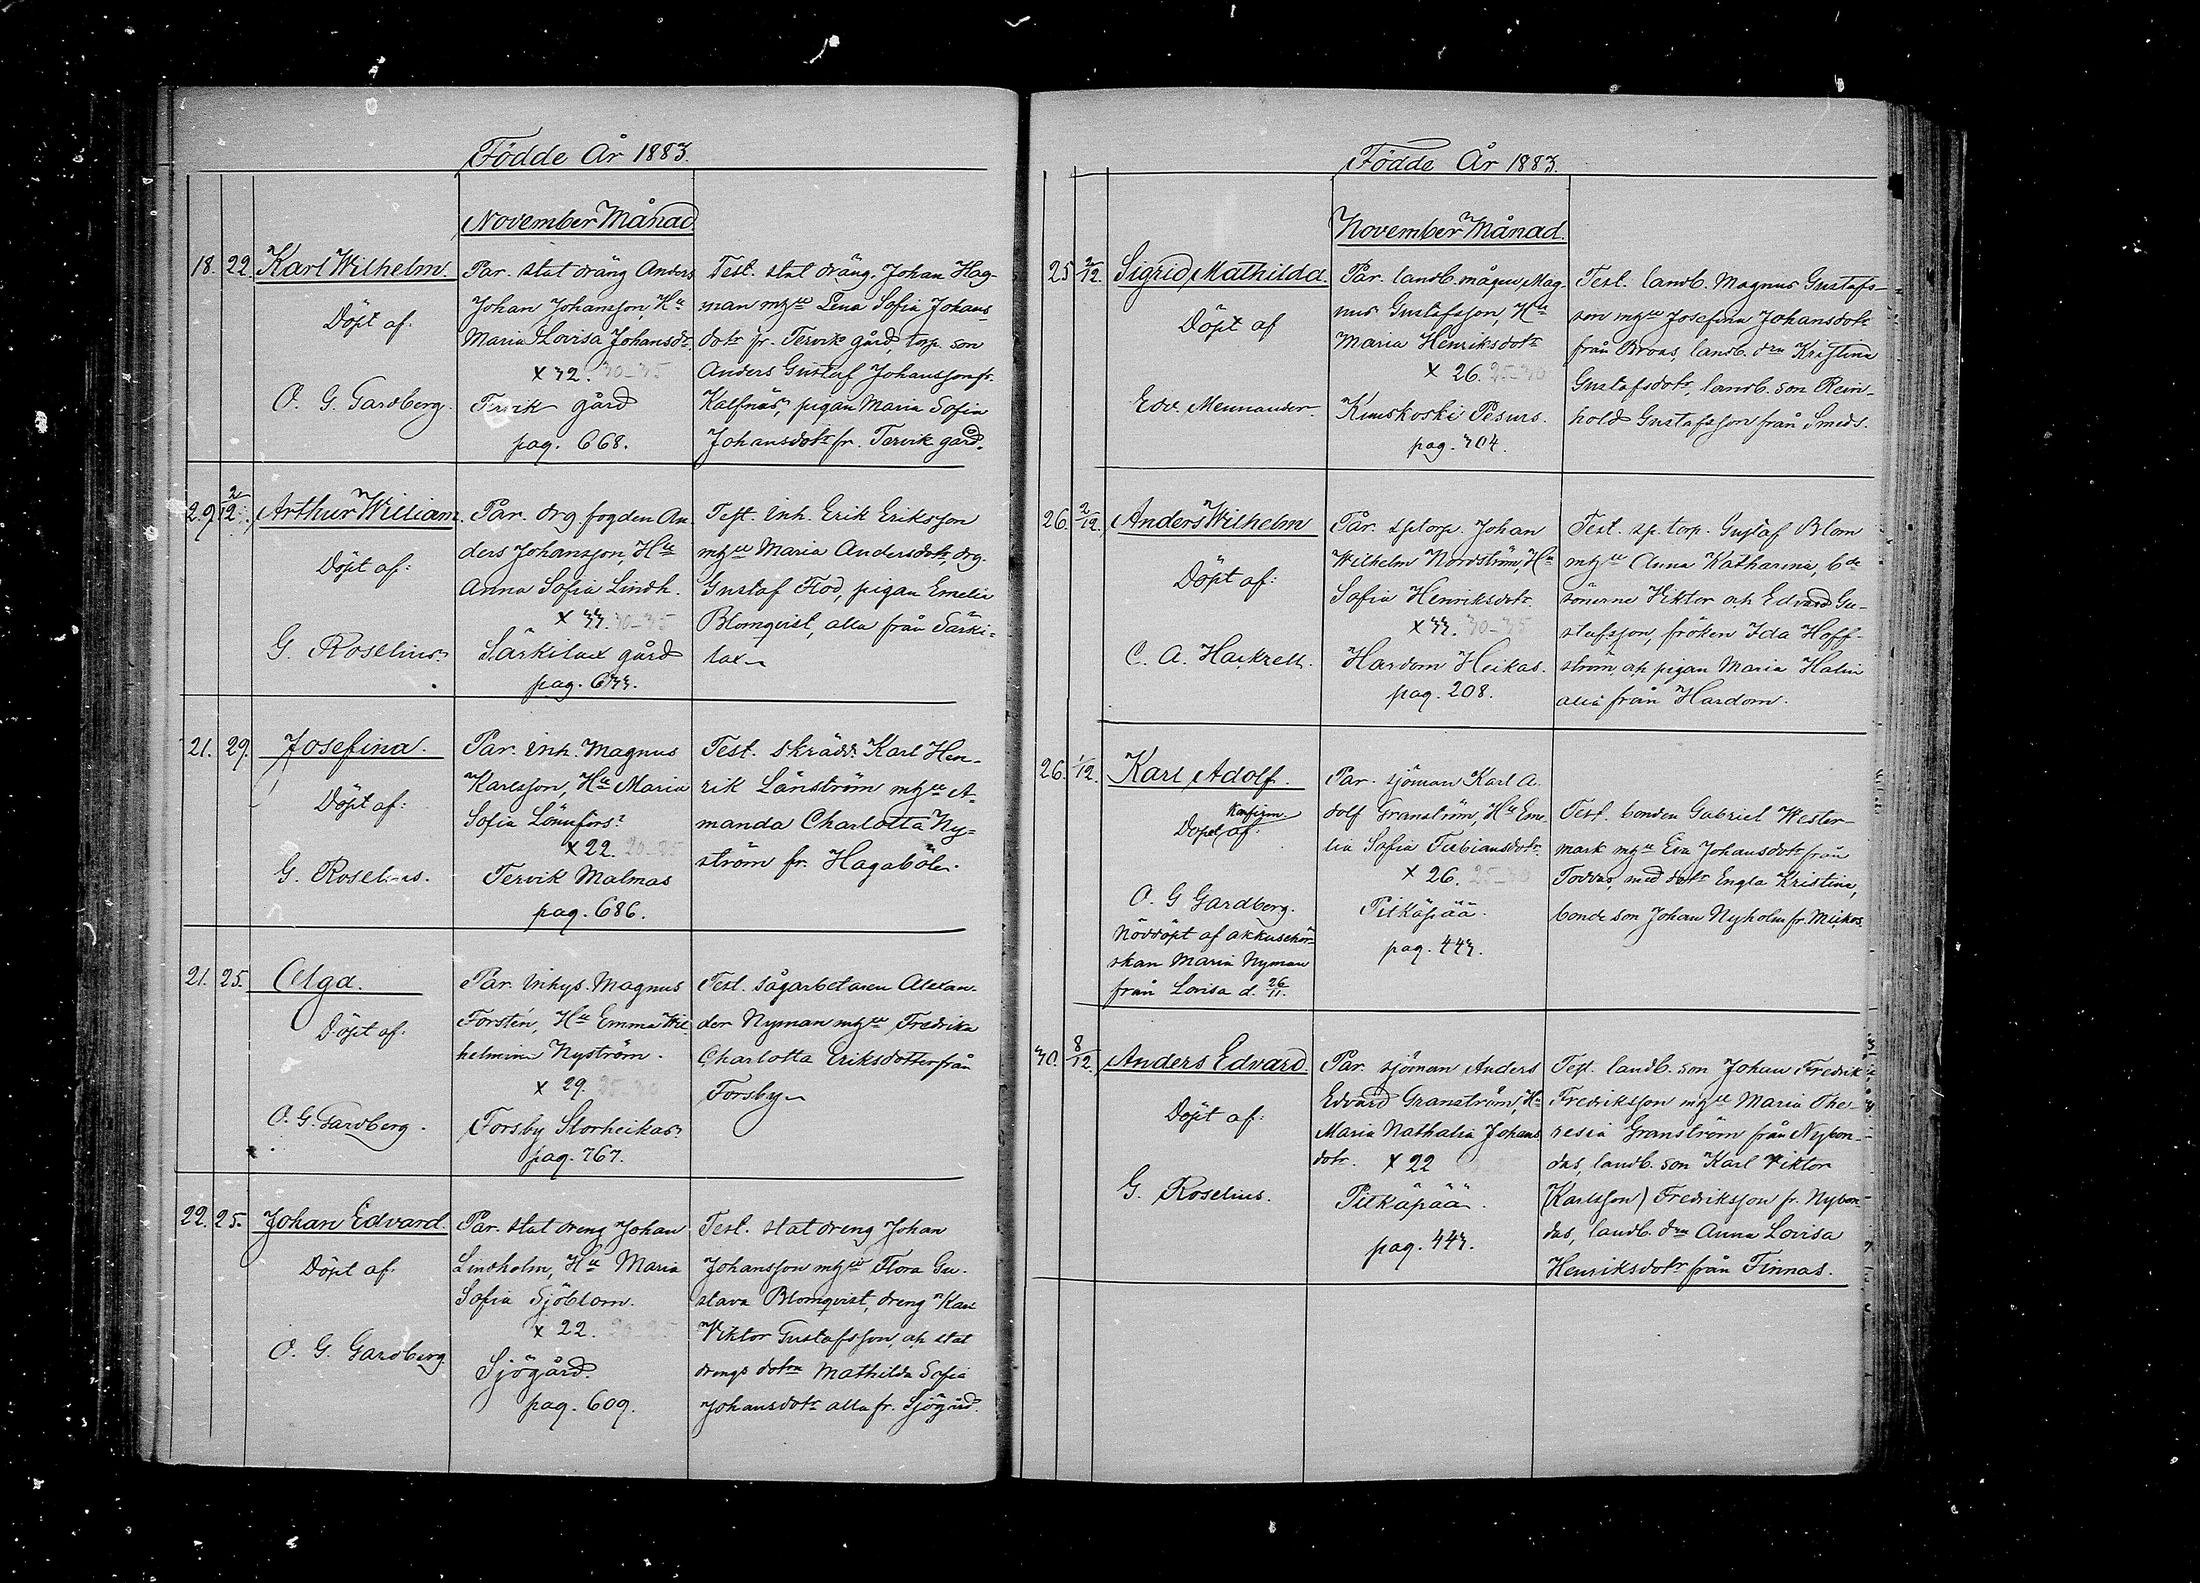 Födde År 1883.
November Månad
18. 22. Karl Wilhelm.
Döpt af:
O. G. Gardberg.
Par. stat dräng Anders
Johan Johansson, Hu
Maria Lovisa Johansdr.
x 32. 30-35
Tervik gård
pag. 668.
Test. stat dräng. Johan Hag-
man m hu Lena Sofia Johans-
dotr fr. Tervik gård, torp. son
Anders Gustaf Johansson fr.
Kalfnäs, pigan Maria Sofia
Johansdotr fr. Tervik gård.
29. 2/12. Arthur William.
Döpt af:
G. Roselius.
Par. drg fogden An-
ders Johansson, Hu
Anna Sofia Lindh.
x 33. 30-35
Särkilax gård
pag. 633.
Test. inh. Erik Eriksson
m hu Maria Andersdotr, drg.
Gustaf Flod, pigan Emelie
Blomqvist, alla från Särki-
lax.
21. 29. Josefina.
Döpt af:
G. Roselius.
Par. inh. Magnus
Karlsson, Hu Maria
Sofia Lönnfors.
x 22.
Tervik Malmas
pag. 686.
Test. skrädd. Karl Hen-
rik Lånström m hu A-
manda Charlotta Ny-
ström fr. Hagaböle.
21. 25. Olga.
Döpt af:
O. G. Gardberg.
Par. inhys. Magnus
Forstén, Hu Emma Wil-
helmina Nyström.
x 29. 25-30
Forsby Storheikas.
pag. 767.
Test. sågarbetaren Alexan-
der Nyman m hu Fredrika
Charlotta Eriksdotter från
Forsby.
22. 25. Johan Edvard.
Döpt af.
O. G. Gardberg.
Par. stat dreng Johan
Lindholm, Hu Maria
Sofia Sjöblom.
x 22. 20-25
Sjögård.
pag. 609.
Test. stat dreng Johan
Johansson m hu Flora Gu-
stava Blomqvist, dreng Karl
Viktor Gustafsson, och stat
drengs dotrn Mathilda Sofia
Johansdotr alla fr. Sjögård.
Födde År 1883.
November Månad.
25. 2/12. Sigrid Mathilda.
Döpt af
Edv. Mennander.
Par. landb. mågen Mag-
nus Gustafsson, Hu
Maria Henriksdotr
x 26. 25-30
Kuuskoski Pesurs.
pag. 304.
Test. landb. Magnus Gustafs-
son m hu Josefina Johansdotr
från Broas, landb. drn Kristina
Gustafsdotr, landb. son Rein-
hold Gustafsson från Smeds.
26. 2/12. Anders Wilhelm
Döpt af:
C. A. Hackzell.
Par. sptorp. Johan
Wilhelm Nordström, Hu
Sofia Henriksdotr.
x 33. 30-35
Hardom Heikas.
pag. 208.
Test. sp. torp. Gustaf Blom
m hu Anna Katharina, bde
sönerne Viktor och Edvard Gu-
stafsson, fröken Ida Hoff-
ström, och pigan Maria Halin
alla från Hardom.
26. 1/12. Karl Adolf.
Konfirm.
Döpt af:
O. G. Gardberg.
Nöddöpt af ackuschör-
skan Maria Nyman
från Lovisa d. 26/11.
Par. sjöman Karl A-
dolf Granström, Hu Eme-
lia Sofia Tubiansdotr.
x 26. 25-30
Pitkäpää.
pag. 443.
Test. bonden Gabriel Wester-
mark m hu Eva Johansdotr från
Toddas, med dotr Engla Kristina,
bonde son Johan Nyholm fr. Mickos.
30. 8/12. Anders Edvard.
Döpt af:
G. Roselius.
Par. sjöman Anders
Edvard Granström, Hu
Maria Nathalia Johans-
dotr. x 22
Pitkäpää.
pag. 443.
Test. landb. son Johan Fredrik
Fredriksson m hu Maria The-
resia Granström från Nybon-
das, landb. son Karl Viktor
(Karlsson) Fredriksson fr. Nybon-
das, landb. drn Anna Lovisa
Henriksdotr från Finnas.